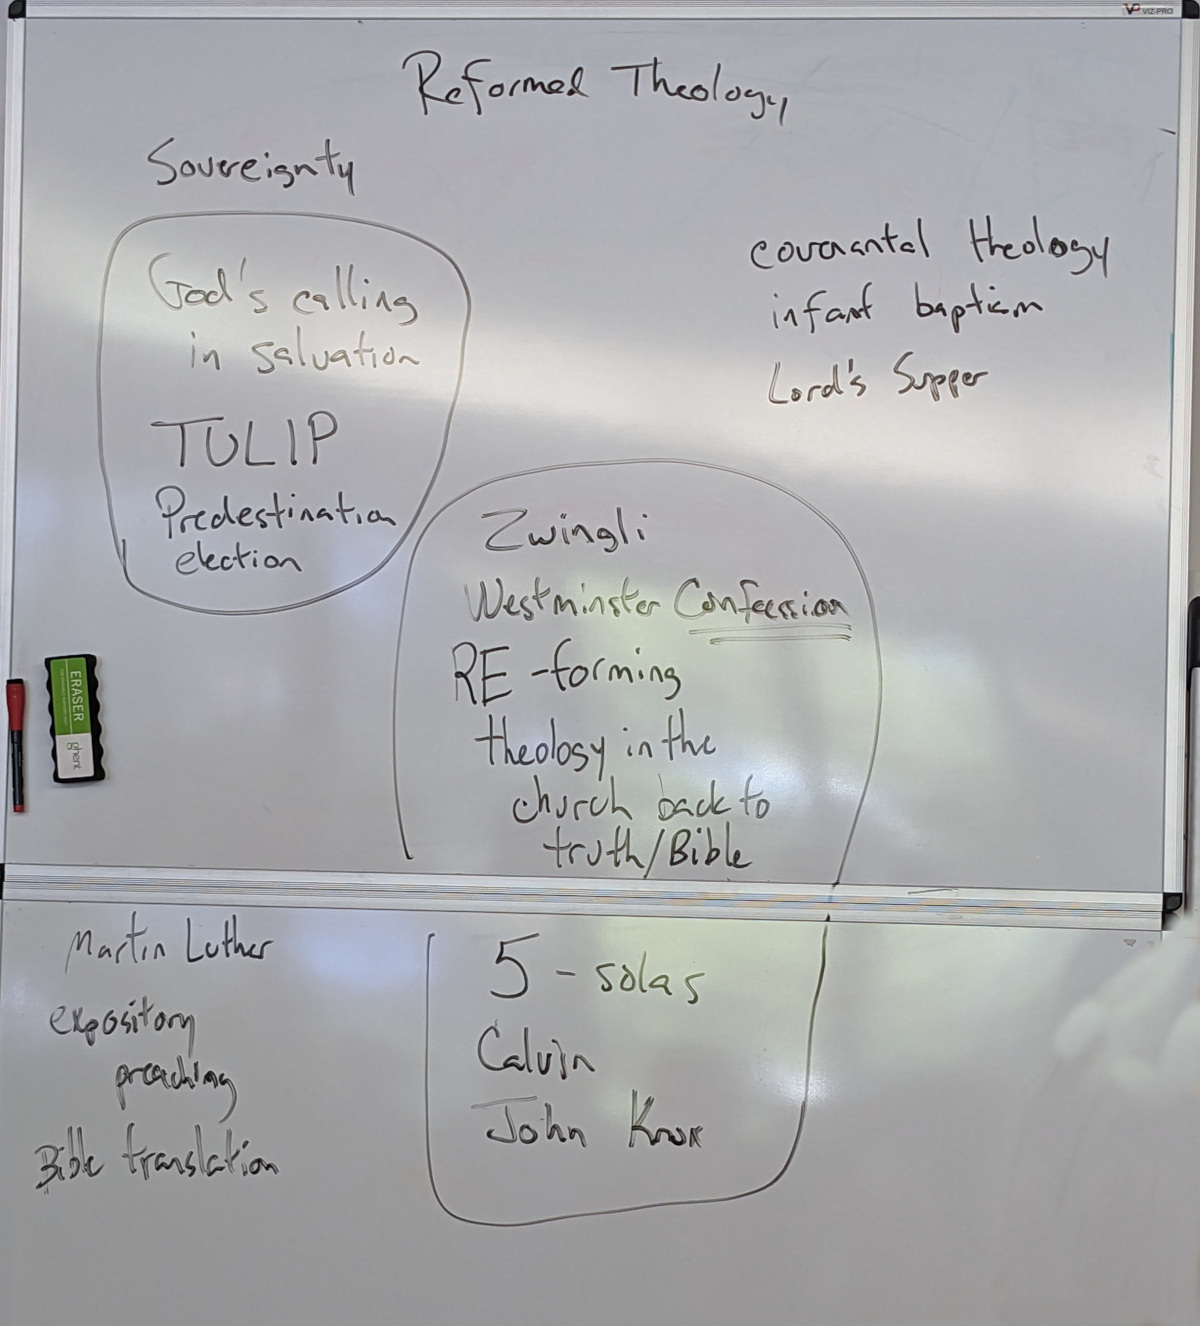 VP VIZ-PRO
Reformed Theology
Sovereignty
God's calling
in salvation
TULIP
Predestination
election
covenantal theology
infant baptism
Lord's Supper
Zwingli
Westminster Confession
RE-forming
theology in the
church back to
truth/Bible
5-solas
Calvin
John Knox
ERASER
ghent
Martin Luther
expository
preaching
Bible translation